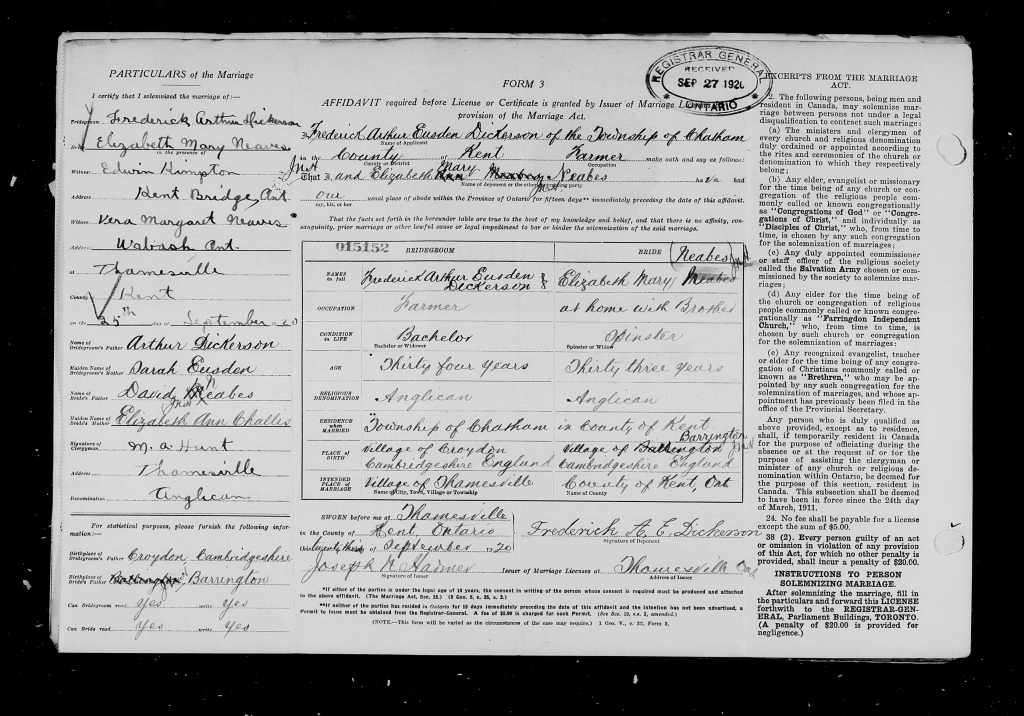 PARTICULARS of the Marriage
I certify that I solemnized the marriage of:—
Frederick Arthur Dickerson
Elizabeth Mary Neaves
in the presence of
Witness Edwin Kimpton
Address Kent Bridge, Ont.
Witness Vera Margaret Neaves
Address Wabash Ont.
at Thamesville
County of Kent
on the 25th day of September 1920
Name of Bridegroom's Father Arthur Dickerson
Maiden Name of Bridegroom's Mother Sarah Eusden
Name of Bride's Father David Neabes
Maiden Name of Bride's Mother Elizabeth Ann Challis
Signature of Clergyman M. A. Hunt
Address Thamesville
Denomination Anglican
For statistical purposes, please furnish the following information:—
Birthplace of Bridegroom's Father Croydon, Cambridgeshire
Birthplace of Bride's Father Barrington
Can Bridegroom read yes write yes
Can Bride read yes write yes
FORM 3
REGISTRAR GENERAL
RECEIVED
SEP 27 1920
* ONTARIO *
AFFIDAVIT required before License or Certificate is granted by Issuer of Marriage
provision of the Marriage Act.
I, Frederick Arthur Eusden Dickerson of the Township of Chatham
Name of Applicant
in the County of Kent Farmer make oath and say as follows:
County or District Occupation
That I, and Elizabeth Mary Neabes had
Name of deponent or the other contracting party
our usual place of abode within the Province of Ontario for fifteen days** immediately preceding the date of this affidavit.
our, his, or her
That the facts set forth in the hereunder table are true to the best of my knowledge and belief, and that there is no affinity, consanguinity, prior marriage or other lawful cause or legal impediment to bar or hinder the solemnization of the said marriage.
015152 BRIDEGROOM BRIDE Neabes
NAMES in full Frederick Arthur Eusden Dickerson & Elizabeth Mary Neabes
OCCUPATION Farmer at home with Brother
CONDITION in LIFE Bachelor Spinster
Bachelor or Widower Spinster or Widow
AGE Thirty four years Thirty three years
RELIGIOUS DENOMINATION Anglican Anglican
RESIDENCE when MARRIED Township of Chatham in County of Kent
Barrington
PLACE OF BIRTH Village of Croydon Village of
Cambridgeshire England Cambridgeshire England
INTENDED PLACE of MARRIAGE Village of Thamesville County of Kent, Ont
Name of City, Town, Village or Township Name of County
SWORN before me at Thamesville
in the County of Kent, Ontario
this twenty third of September 1920
Frederick A. E. Dickerson
Signature of Deponent
Signature of Issuer
Issuer of Marriage Licenses at Thamesville Ont
Address of Issuer
*If either of the parties is under the legal age of 18 years, the consent in writing of the person whose consent is required must be produced and attached to the above affidavit.
**If neither of the parties has resided in Ontario for 15 days immediately preceding the date of this affidavit and the intention has not been advertised, a Permit to issue must be obtained from the Registrar-General.
(NOTE.—This form will be varied as the circumstances of the case may require.) 1 Geo. V., c. 32, Form 3.
EXCERPTS FROM THE MARRIAGE ACT.
2. The following persons, being men and
resident in Canada, may solemnize marriage
between persons not under a legal
disqualification to contract such marriage:
(a) The ministers and clergymen of
every church and religious denomination
duly ordained or appointed according to
the rites and ceremonies of the church or
denomination to which they respectively
belong;
(b) Any elder, evangelist or missionary
for the time being of any church or congregation
of the religious people commonly
called or known congregationally
as "Congregations of God" or "Congregations
of Christ," and individually as
"Disciples of Christ," who, from time to
time, is chosen by any such congregation
for the solemnization of marriages;
(c) Any duly appointed commissioner
or staff officer of the religious society
called the Salvation Army chosen or commissioned
by the society to solemnize
marriages;
(d) Any elder for the time being of
the church or congregation of religious
people commonly called or known congregationally
as "Farringdon Independent
Church," who, from time to time, is
chosen by such church or congregation
for the solemnization of marriages:
(e) Any recognized evangelist, teacher
or elder for the time being of any congregation
of Christians commonly called or
known as "Brethren," who may be appointed
by any such congregation for the
solemnization of marriages, and whose appointment
has previously been filed in the
office of the Provincial Secretary.
Any person who is duly qualified as
above provided, except as to residence,
shall, if temporarily resident in Canada
for the purpose of officiating during the
absence or at the request of or for the
purpose of assisting the clergyman or
minister of any church or religious denomination
within Ontario, be deemed, for
the purpose of this section, resident in
Canada. This subsection shall be deemed
to have been in force since the 24th day
of March, 1911.
24. No fee shall be payable for a license
except the sum of $5.00.
38 (2). Every person guilty of an act
or omission in violation of any provision
of this Act, for which no other penalty is
provided, shall incur a penalty of $20.00.
INSTRUCTIONS TO PERSON
SOLEMNIZING MARRIAGE.
After solemnizing the marriage, fill in
the particulars and forward this LICENSE
forthwith to the REGISTRAR-GENERAL,
Parliament Buildings, TORONTO.
(A penalty of $20.00 is provided for
negligence.)